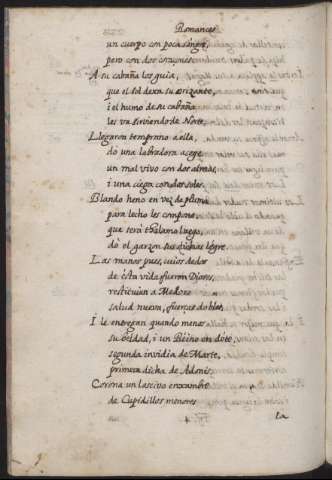 Romances
un cuerpo con poca sangre,
pero con dos coraçones.
A su cabaña los guia,
que el Sol dexa su orizonte,
i el humo de su cabaña
les va sirviendo de Norte,
Llegaron temprano a ella,
do una labradora acoge
un mal vivo con dos almas,
i una ciega con dos soles.
Blando heno en vez de pluma
para lecho les compone,
que serà thalamo luego,
dò el garzon sus dichas logre.
Las manos pues, cuios dedos
de èsta vida fueron Dioses,
restituien a Medoro
salud nueva, fuerças dobles,
I le entregan quando menos
su beldad, i un Reino en dote,
segunda invidia de Marte,
primera dicha de Adonis.
Corona un lascivo enxambre
de Cupidillos menores
la